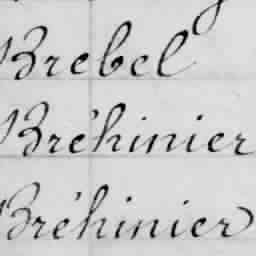 Brebel
Bréhinier
Bréhinier